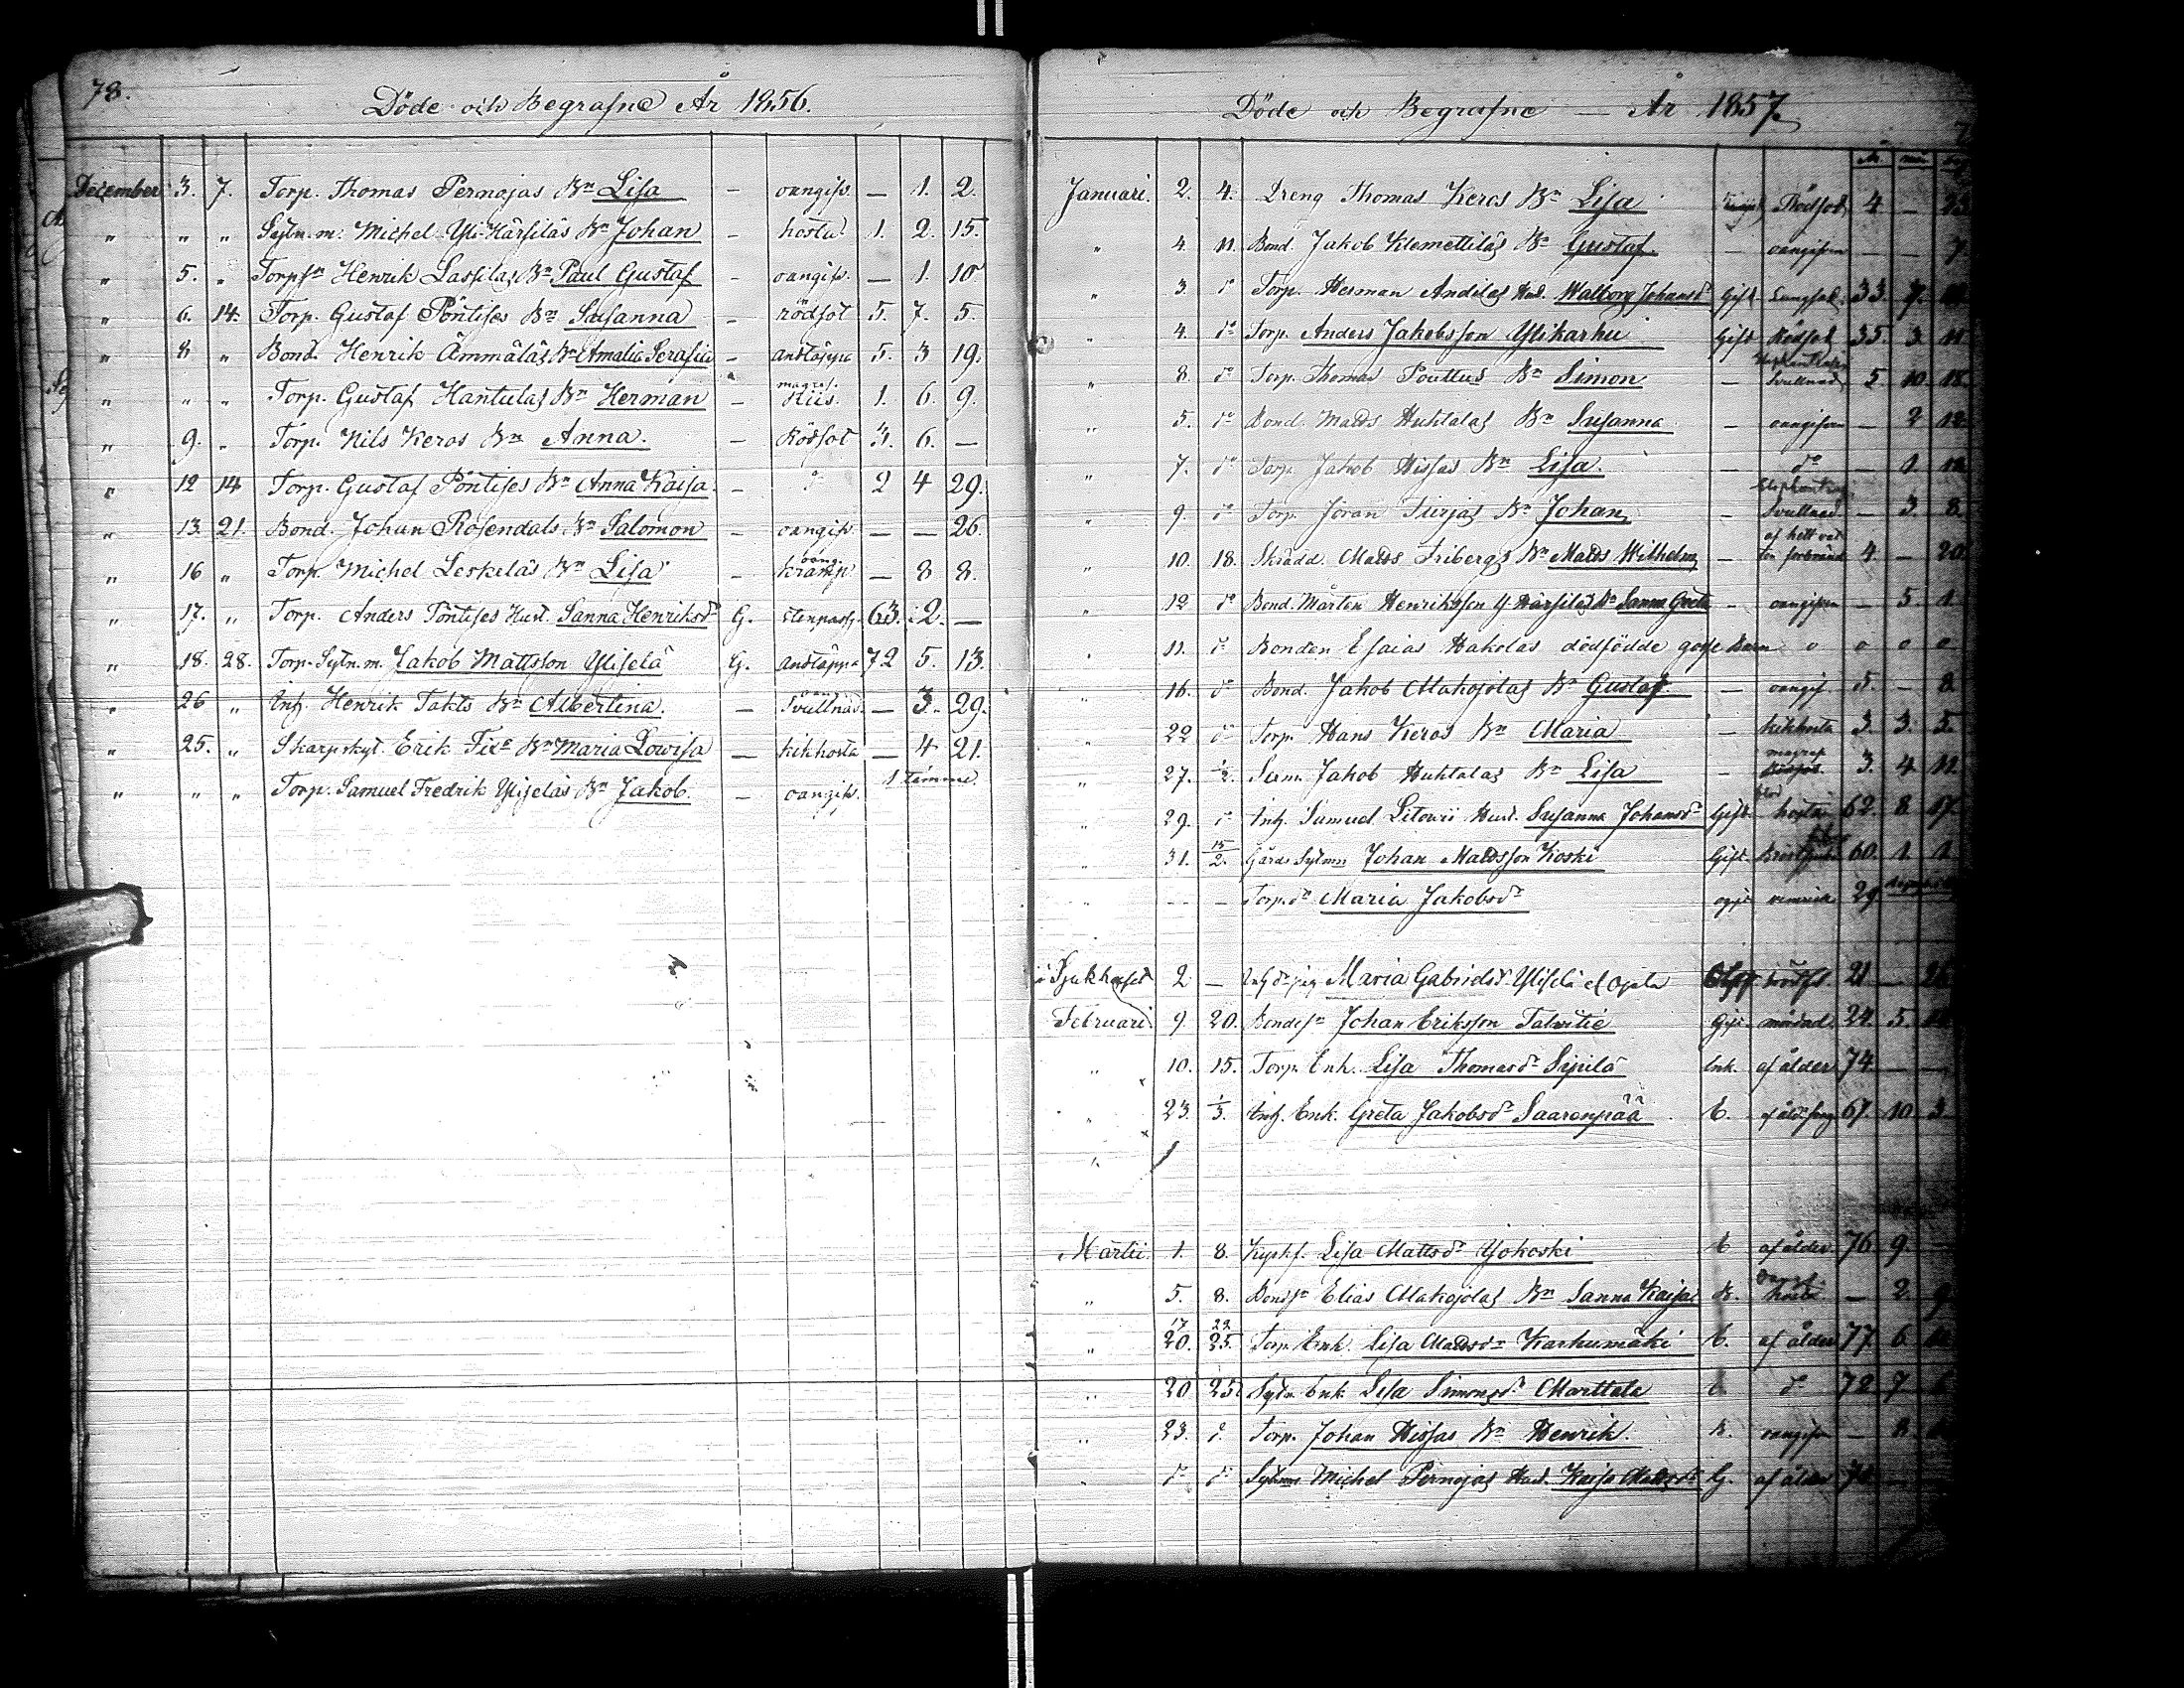 78.
Döde och Begrafne År 1856.
December 3. 7. Torp. Thomas Pernajas Bn Lisa — oangifv. — 1. 2.
" " " Sytn.m. Michel Yli-Härsiläs Bn Johan — hosta 1. 2. 15.
" 5. " Torpsn Henrik Lassilas Bn Paul Gustaf — oangifv. — 1. 10
" 6. 14. Torp. Gustaf Pöntises Bn Susanna — rödsot 5. 7. 5.
" 8 " Bond. Henrik Ämmäläs Bn Amalia Serafia — andtäppa 5. 3 19.
" " " Torp. Gustaf Hantulas Bn Herman — magref. 1. 6. 9.
" 9. " Torp. Nils Keros Bn Anna. — Rödsot 3. 6. —
" 12 14 Torp. Gustaf Pöntises Bn Anna Kaisa. — do 2 4 29.
" 13. 21. Bond. Johan Rosendals Bn Salomon — oangifv. — — 26.
" 16 " Torp. Michel Leskeläs Bn Lisa — kramp — 8 8.
" 17. " Torp. Anders Pöntises Hust. Sanna Henriksdr G. stenpass. 63. 2. —
" 18. 28. Torp. Sytn.m. Jakob Mattsson Yliselä G. andtäppa 72 5. 13.
" 26 " Inh. Henrik Takts Bn Albertina. — Svullnad. — 3. 29.
" 25. " Skarpskyt. Erik Fixe Bn Maria Lowisa — kikhosta — 4 21.
" " " Torp. Samuel Fredrik Yliseläs Bn Jakob. — oangifv. 1 timme.
Döde och Begrafne — År 1857.
Januari. 2. 4. Dreng Thomas Keros Bn Lisa Rödsot 4 — 23
" 4. 11. Bond. Jakob Klemettiläs Bn Gustaf. — oangifven — — 7
" 3. do Torp. Herman Anditas Hust. Walborg Johansdr Gift. Lungsot. 33. 7.
" 4. do Torp. Anders Jakobsson Ylikarhu Gift Rödsot 35. 3. 11
" 8. do Torp. Thomas Pouttus Bn Simon — Svullnad 5 10. 18.
" 5. do Bond. Matts Huhtalas Bn Susanna — oangifven — 2 12
" 7. do Torp. Jakob Hissas Bn Lisa. — do — 1. 12
" 9. do Torp. Jöran Turjas Bn Johan — Svullnad — 3. 8.
" 10. 18. Skrädd. Matts Fribergs Bn Matts Wilhelm — af hett vatten förbränd 4. — 20.
" 12 do Bond. Mårten Henriksson Y. Härsiläs Bn Sanna Greta — oangifven — 5. 1
" 11. do Bonden Esaias Hakolas dödfödde gosse Barn o o o o
" 16. do Bond. Jakob Makojolas Bn Gustaf. — oangif. 5. — 8
" 22 do Torp. Hans Keros Bn Maria — kikhosta 3. 3. 5.
" 27. 1/2. Jakob Huhtalas Bn Lisa — magref. 3. 4 12
" 29. do Inh. Samuel Litowii Hust. Susanna Johansdr Gift. blodhosta 62. 8. 17.
" 31. 15/2. Gårds Sytnm Johan Mattsson Koski Gift. 60. 1. 1
— — Torp.dr Maria Jakobsdr ogift 29
i Sjukhuset 2 — Maria Gabrielsd. Yliselä el Ojala 21 —
Februari. 9. 20. Bondesn Johan Eriksson Talwitie Gift. mördad. 24. 5.
" 10. 15. Torp. Enk. Lisa Thomasdr Sipilä Enk. af ålder 74. — —
" 23. 1/3. Inh. Enk. Greta Jakobsdr Saarenpää E. 67. 10. 3.
Martii. 1. 8. Lisa Mattsdr Yjokoski E af ålder 76 9.
" 5. 8. Bondsn Elias Makojolas Bn Sanna Kaisa B. hosta — 2. 9
17 22
" 20. 25. Torp. Enk. Lisa Mattsdr Karhumäki E. af ålder 77 6.
" 20 25 Sytn. Enk. Lisa Simonsdr Marttala E. do 72 7
" 23. do Torp. Johan Hissas Bn Henrik. B. oangifven —
" do do Sytnm Michel Pernajas Hust. Kaisa Mattsdr G. af ålder